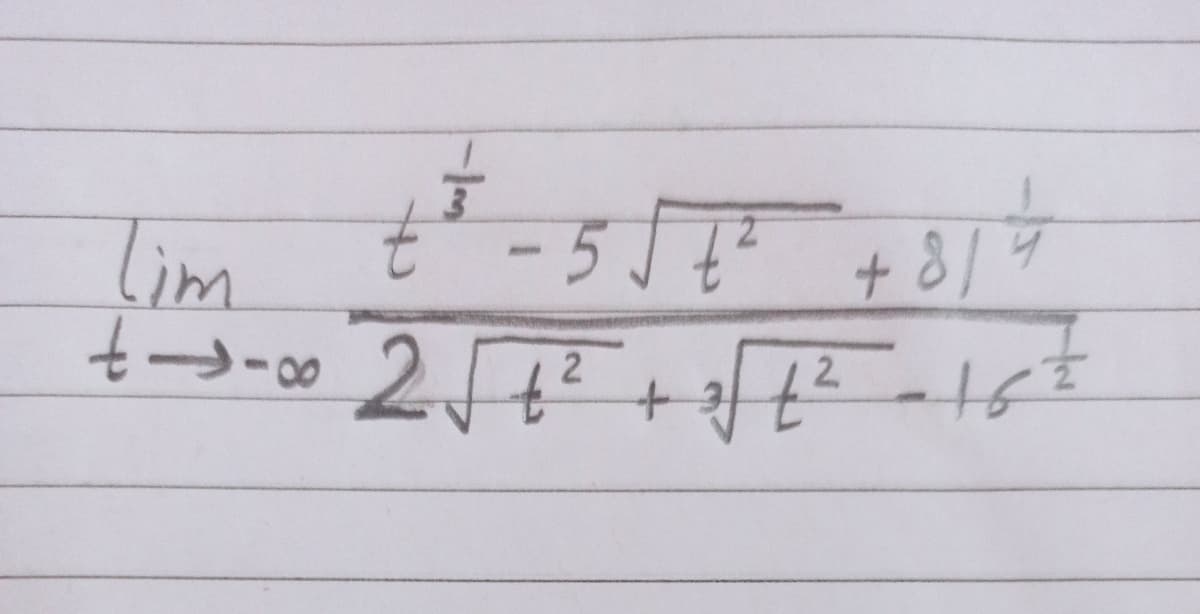 lim t→-∞ (t^(1/3) - 5√(t²) + 81^(1/4)) / (2√(t²) + ∛(t²) - 16^(1/2))